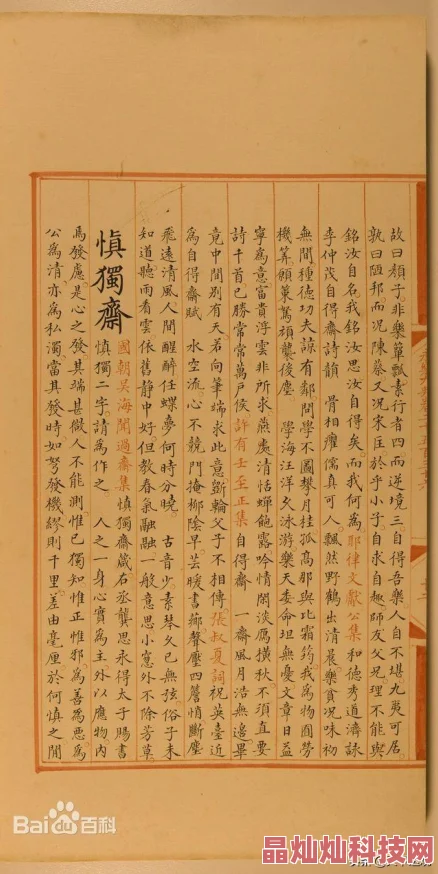 故曰顏子非樂簞瓢素行者四而逆境三自得吾樂人自不堪九夷可居
孰曰陋邦而况陳蔡又况宋匡於乎小子自求自趣師友父兄理不能與
銘汝自名我銘汝思汝自得矣而我何為耶律文獻公集和德秀道濟詠
李仲茂自得齋詩韻 骨相癯儒真可人飄然野鶴出清晨樂貧况味初
無間種德功夫諒有鄰問學不圖攀月桂孤高那與比霜筠我為物囿勞
機算願策駑頑襲後塵 學海汪洋久泳游樂天委命坦無憂文章日益
寧為意富貴浮雲非所求燕處清恬蟬飽露吟情閑淡鴈橫秋不須直要
詩千首已勝常常萬戶侯許有壬至正集自得齋 一齋風月浩無邊畢
竟中間别有天若向筆端求此意斵輪父子不相傳張叔夏詞祝英臺近
為自得齋賦 水空流心不競門掩柳陰早芸暖書薌聲壓四簷悄斷塵
飛遠清風人間醒醉任蝶夢何時分曉 古音少素琴久已無弦俗子未
知道聽雨看雲依舊静中好但教春氣融融一般意思小窻外不除芳草
慎獨齋
國朝吴海聞過齋集慎獨齋箴石丞龔思永得太子賜書
慎獨二字請為作之 人之一身心實為主外以應物内
焉發慮是心之發其端甚微人不能測惟已獨知惟正惟邪為善為惡為
公為清亦為私濁當其發時如弩發機繆則千里差由毫厘於何慎之閒
Bai百科
晶灿灿科技网